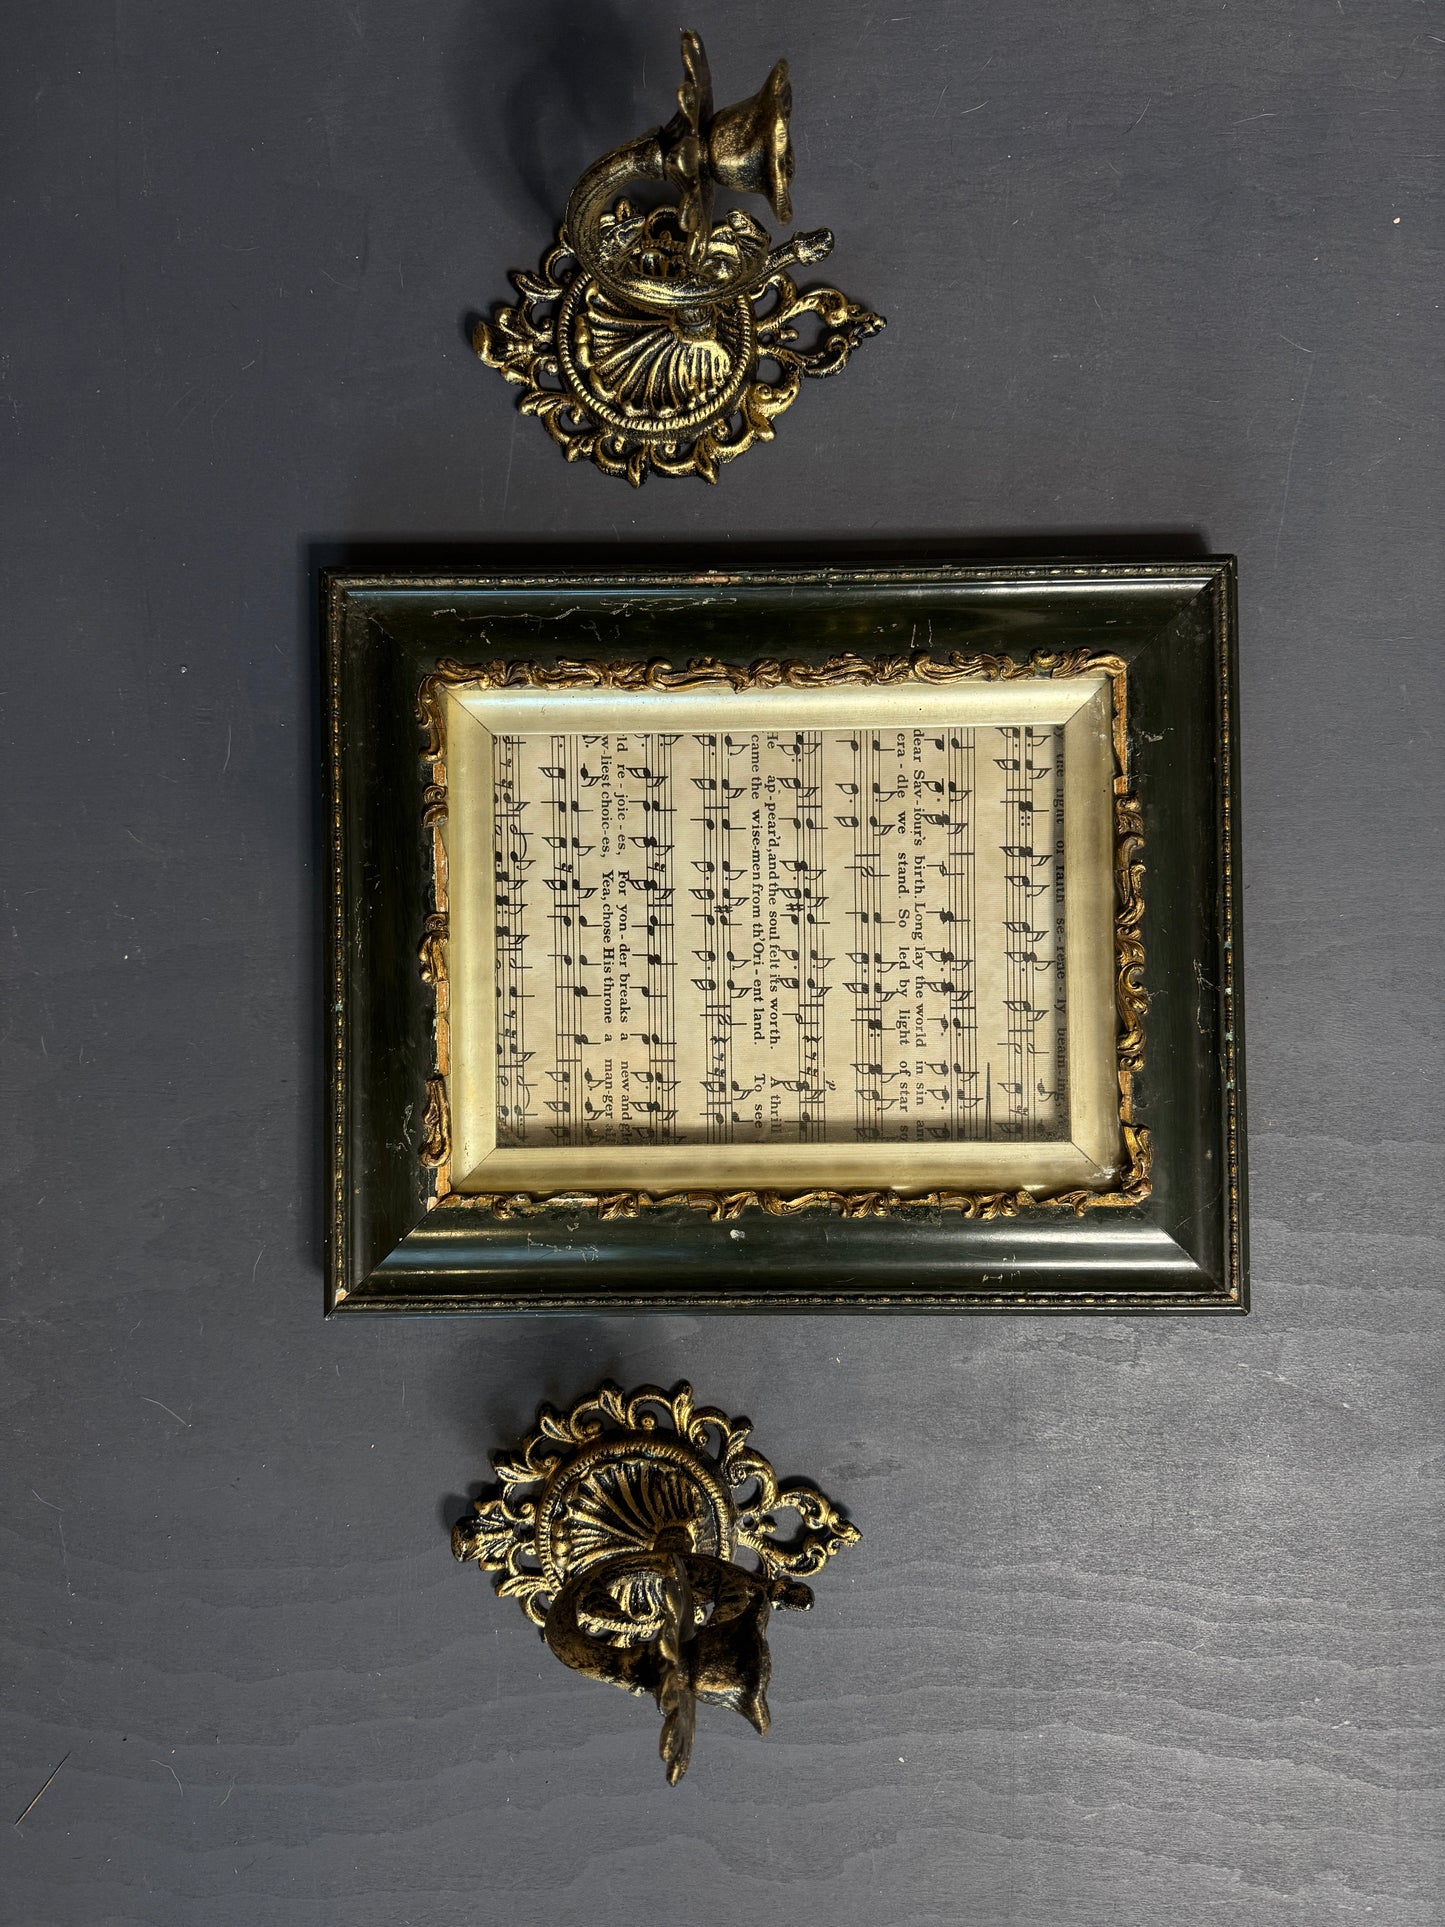 by the light of faith se - rene - ly beam - ing,
dear Sav - iour's birth. Long lay the world in sin and
era - dle we stand. So led by light of star
p
He ap - pear'd, and the soul felt its worth. A thrill
came the wise-men from th' Ori - ent land. To see
re - joic - es, For yon - der breaks a new and
w - liest choic - es, Yea, chose His throne a man - ger